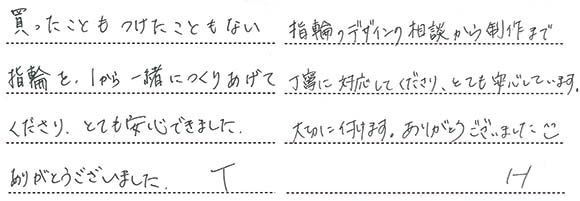 買ったこともつけたこともない
指輪を、1から一緒につくりあげて
くださり、とても安心できました。
ありがとうございました。 T
指輪のデザインの相談から制作まで
丁寧に対応してくださり、とても安心しています。
大切に付けます。ありがとうございました☺
H